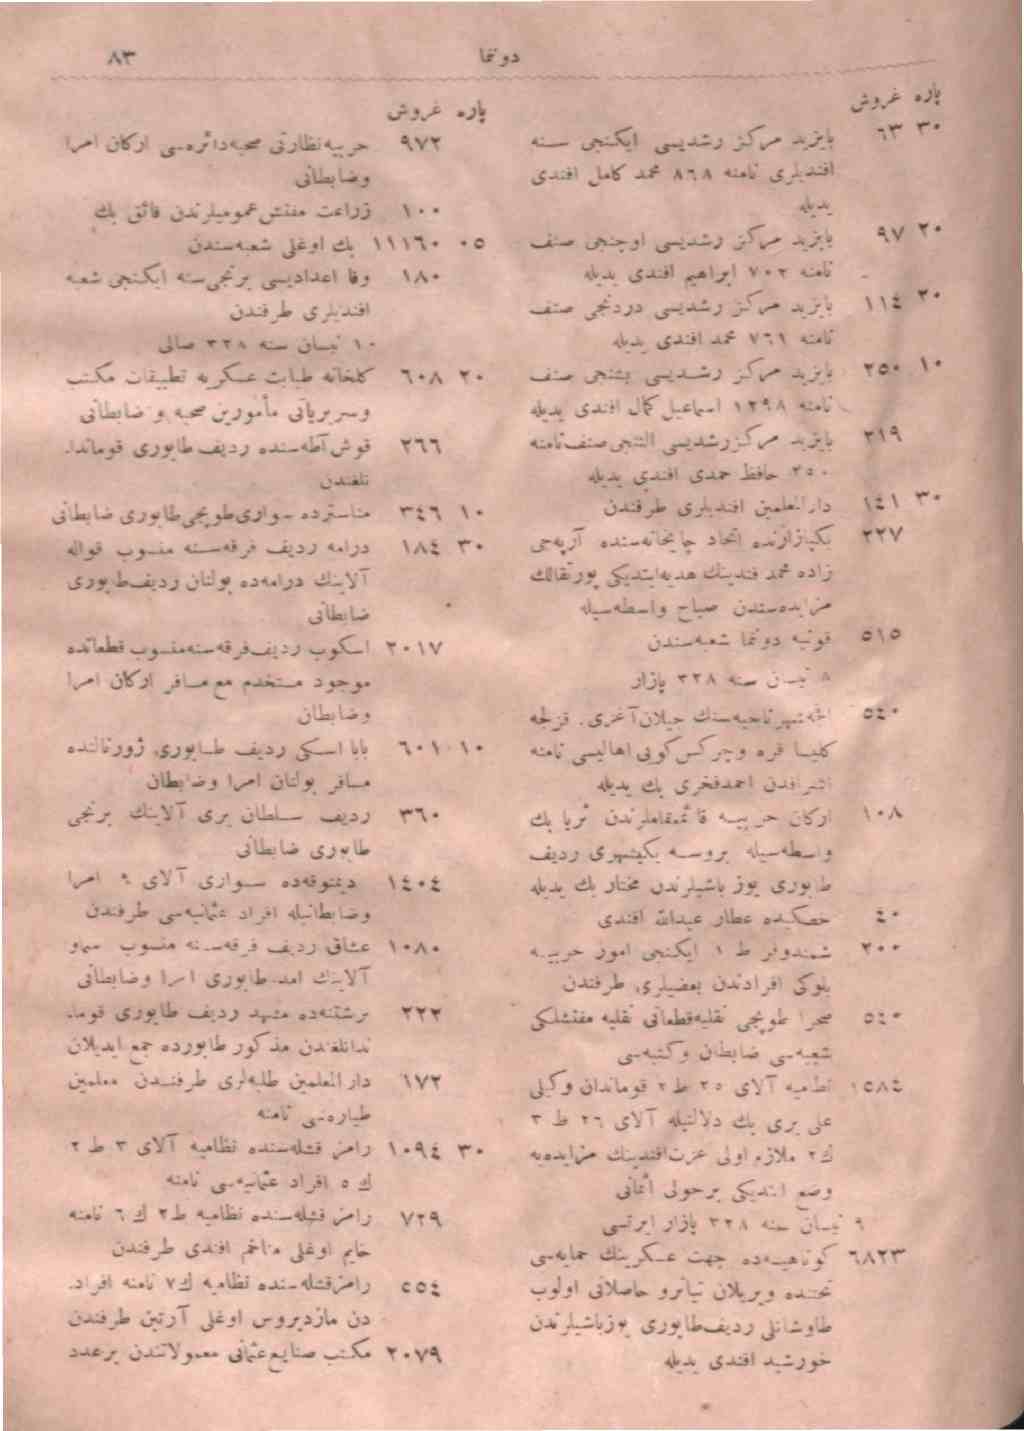 دوننما ٨٣
پاره غروش
٣٠ ٦٣ بايزيد مركز رشديسى ايكنجى سنه
افنديلرى نامنه ٨٦٨ محمد كامل افندى
يديله
٢٠ ٩٧ بايزيد مركز رشديسى اوچنجى صنف
نامنه ٧٠٢ ابراهيم افندى يديله
٢٠ ١١٤ بايزيد مركز رشديسى دردنجى صنف
نامنه ٧٦١ محمد افندى يديله
١٠ ٢٥٠ بايزيد مركز رشديسى بشنجى صنف
نامنه ١٢٩٨ اسماعيل كمال افندى يديله
٢١٩ بايزيد مركز رشديسى التنجى صنف نامنه
٢٥٠ حافظ حمدى افندى يديله
٣٠ ١٤١ دارالمعلمين افنديلرى طرفندن
٢٢٧ بكپازارنده اتحاد چايخانه‌سنده آرپه‌جى
زاده محمد فندينك هديه‌ايتديكى پورتقالك
مزايده‌سندن صباح واسطه‌سيله
٥١٥ قونيه دوننما شعبه‌سندن
٨ نيسان سنه ٣٢٨ پازار
٥٤٠ الجه‌شهر ناحيه‌سنك جيلان آغزى، قزلجه
كليسا قره وچركس كويى اهاليسى نامنه
اشرافدن احمدفخرى بك يديله
١٠٨ اركان حربيه قائممقاملرندن ثريا بك
واسطه‌سيله بروسه يكيشهرى رديف
طابورى يوز باشيلرندن مختار بك يديله
٤٠ خصكيده عطار عبدالله افندى
٢٠٠ شمندوفر ط ١ ايكنجى امور حربيه
بلوكى افرادندن بعضيلرى طرفندن
٥٤٠ صحرا طوپجى نقليه‌قطعاتى نقليه مفتشلكى
شعبه‌سى ضابطان وكتبه‌سى
١٥٨٤ نظاميه آلاى ٢٥ ط ٢ قوماندان وكيلى
على برى بك دلالتيله آلاى ٢٦ ط ٣
ك٢ ملازم اولى عزت‌افندينك مزايده‌يه
وضع ايتديكى برحولى اثمانى
٩ نيسان سنه ٣٢٨ پازار ايرتسى
٦٨٢٣ كوتاهيه‌ده جهت عسكرينك حمايه‌سى
تحتنده ويريلان تياترو حاصلاتى اولوب
طاوشانلى رديف‌طابورى يوزباشيلرندن
خورشيد افندى يديله
پاره غروش
٩٧٢ حربيه‌نظارتى صحيه‌دائره‌سى اركان امرا
وضابطانى
١٠٠ زراعت مفتش‌عموميلرندن فائق بك
٠٥ ١١١٦٠ بك اوغلى شعبه‌سندن
١٨٠ وفا اعداديسى برنجى‌سنه ايكنجى شعبه
افنديلرى طرفندن
١٠ نيسان سنه ٣٢٨ صالى
٢٠ ٦٠٨ كلخانه طبابت عسكريه تطبيقات مكتب
وسريرياتى مأمورين صحيه و ضابطانى
٢٦٦ قوش‌آطه‌سنده رديف طابورى قوماندا
نلغندن
١٠ ٣٤٦ مناسترده سوارى‌طوپجى‌طابورى ضابطانى
٣٠ ١٨٤ درامه رديف فرقه‌سنه منسوب قواله
آلاينك درامه‌ده بولنان رديف‌طابورى
ضابطانى
٢٠١٧ اسكوب رديف‌فرقه‌سنه‌منسوب قطعاتده
موجود مستخدم مع مسافر اركان امرا
وضابطان
١٠ ٦٠١ بابا اسكى رديف طابورى ژورنالنده
مسافر بولنان امرا وضابطان
٣٦٠ رديف سلطان يرى آلاينك برنجى
طابورى ضابطانى
١٤٠٤ ديمتوقه‌ده سوارى آلاى ٩ امرا
وضابطانيله افراد عثمانيه‌سى طرفندن
١٠٨٠ عشاق رديف فرقه‌سنه منسوب سماو
آلاينك امد طابورى امرا وضابطانى
٢٢٢ برشتنه‌ده مشهد رديف طابورى قوما
ندانلغندن مذكور طابورده جمع ايديلان
١٧٢ دارالمعلمين طلبه‌لرى طرفندن معلمين
طياره‌سى نامنه
٣٠ ١٠٩٤ رامز قشله‌سنده نظاميه آلاى ٣ ط ٢
ك ٥ افراد عثمانيه‌سى نامنه
٧٢٩ رامز قشله‌سنده نظاميه ط٢ ك ٦ نامنه
خايم اوغلى مناخم افندى طرفندن
٥٥٤ رامزقشله‌سنده نظاميه ك٧ نامنه افراد
دن ماردیروس اوغلى آرتين طرفندن
٢٠٧٩ مكتب صنايع‌عثمانى معمولاتندن برعدد